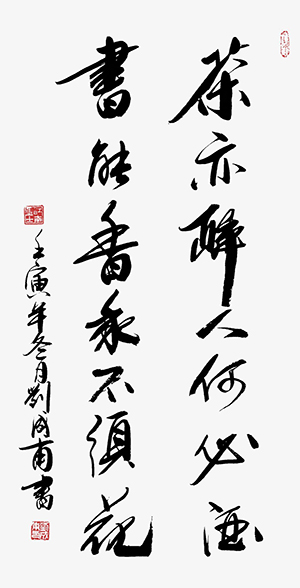 茶亦醉人何必酒
書能香我不須花
壬寅年冬月劉成甫書